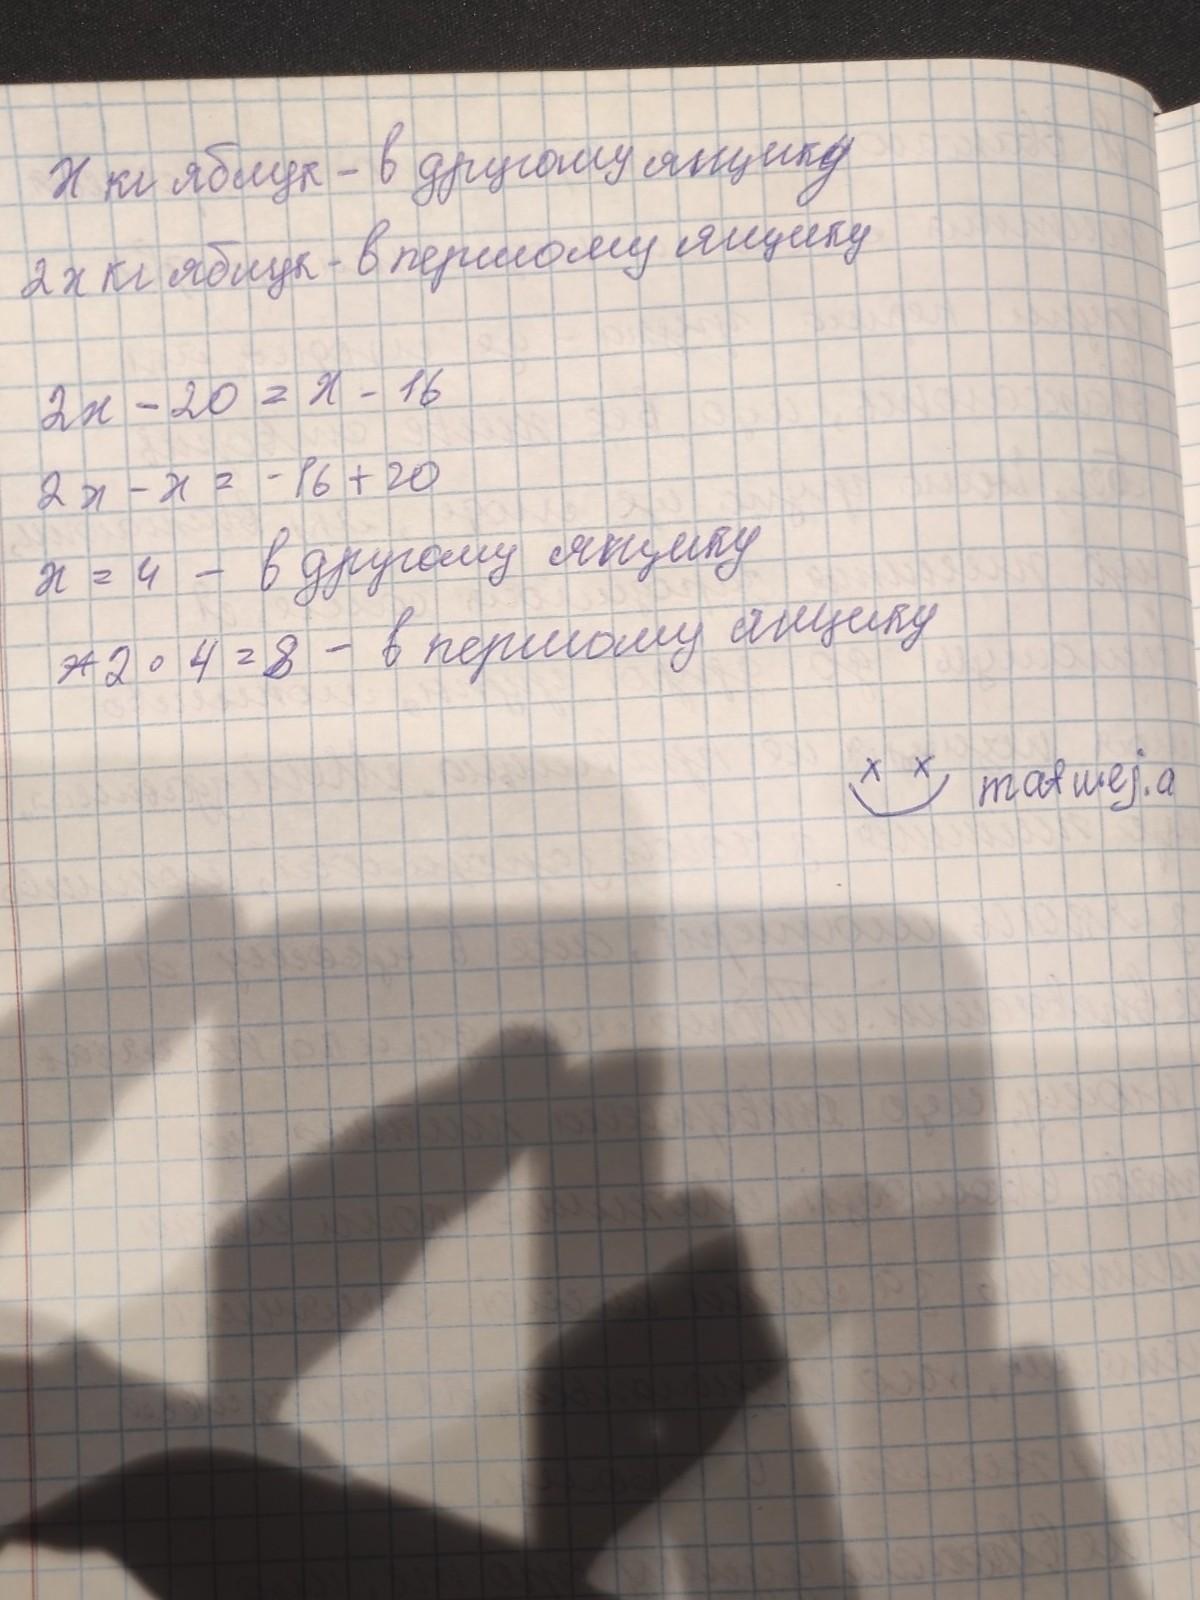 x кг яблук - в другому янцику
2x кг яблук - в першому янцику
2x - 20 = x - 16
2x - x = -16 + 20
x = 4 - в другому янцику
2 ∘ 4 = 8 - в першому янцику
x x matwej.a